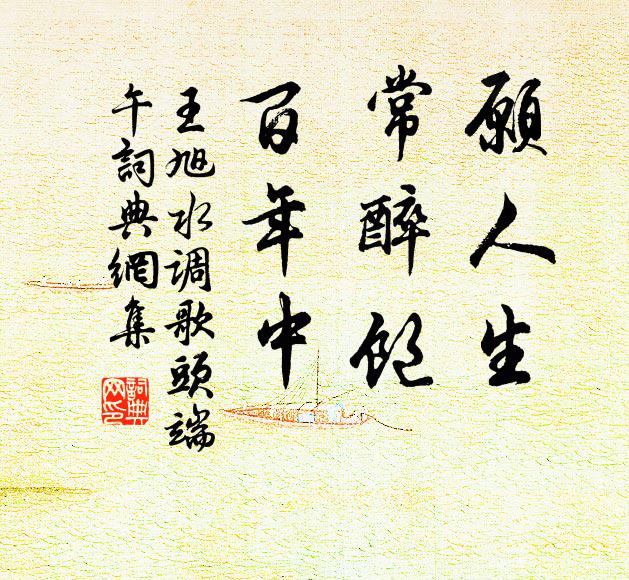 願人生
常醉飽
百年中
王旭水调歌頭端
午詞典網集
詞典
网印